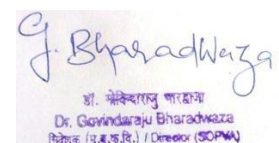 G. Bharadwaza
डॉ. गोविन्दाराजु भारद्वाजा
Dr. Govindaraju Bharadwaza
निदेशक / Director (SOPMA)